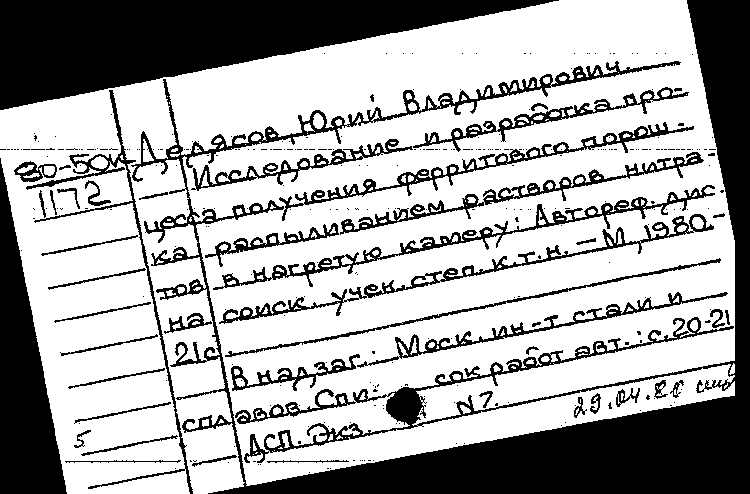 80-50к Делясов, Юрий Владимирович.
1172 Исследование и разработка про-
цесса получения ферритового порош-
ка распыливанием растворов нитра-
тов в нагретую камеру: Автореф. дис.
на соиск. учен. степ. к.т.н. — М., 1980. -
21с.
В надзаг.: Моск. ин-т стали и
сплавов. Спи- сок работ авт.: с. 20-21
5 ДСП. Экз. N 7. 29.04.80